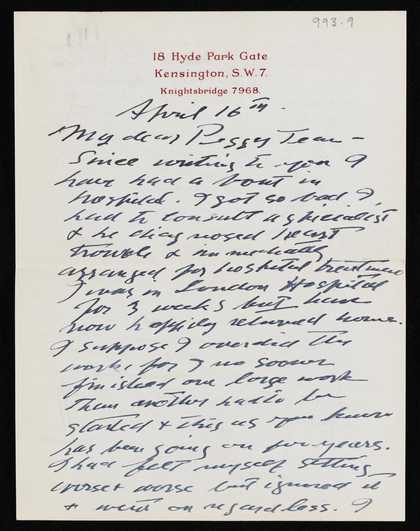 993.9
18 Hyde Park Gate
Kensington, S.W.7.
Knightsbridge 7968.
April 16th.
My dear Peggy Jean –
Since writing to you I
have had a bout in
hospital. I got so bad I
had to consult a specialist
& he diagnosed heart
trouble & immediately
arranged for hospital treatment
I was in London Hospital
for 3 weeks but have
now happily returned home.
I suppose I overdid the
work, for I no sooner
finished one large work
than another had to be
started & this as you know
has been going on for years.
I had felt myself getting
worse & worse but ignored it
& went on regardless. I